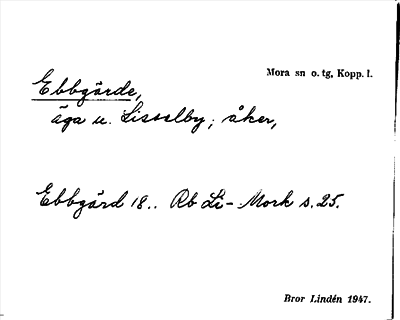 Mora sn o. tg, Kopp. l.
Ebbgärde,
äga u. Lisselby; åker,
Ebbgärd 18.. Rb Li - Mork s. 25.
Bror Lindén 1947.